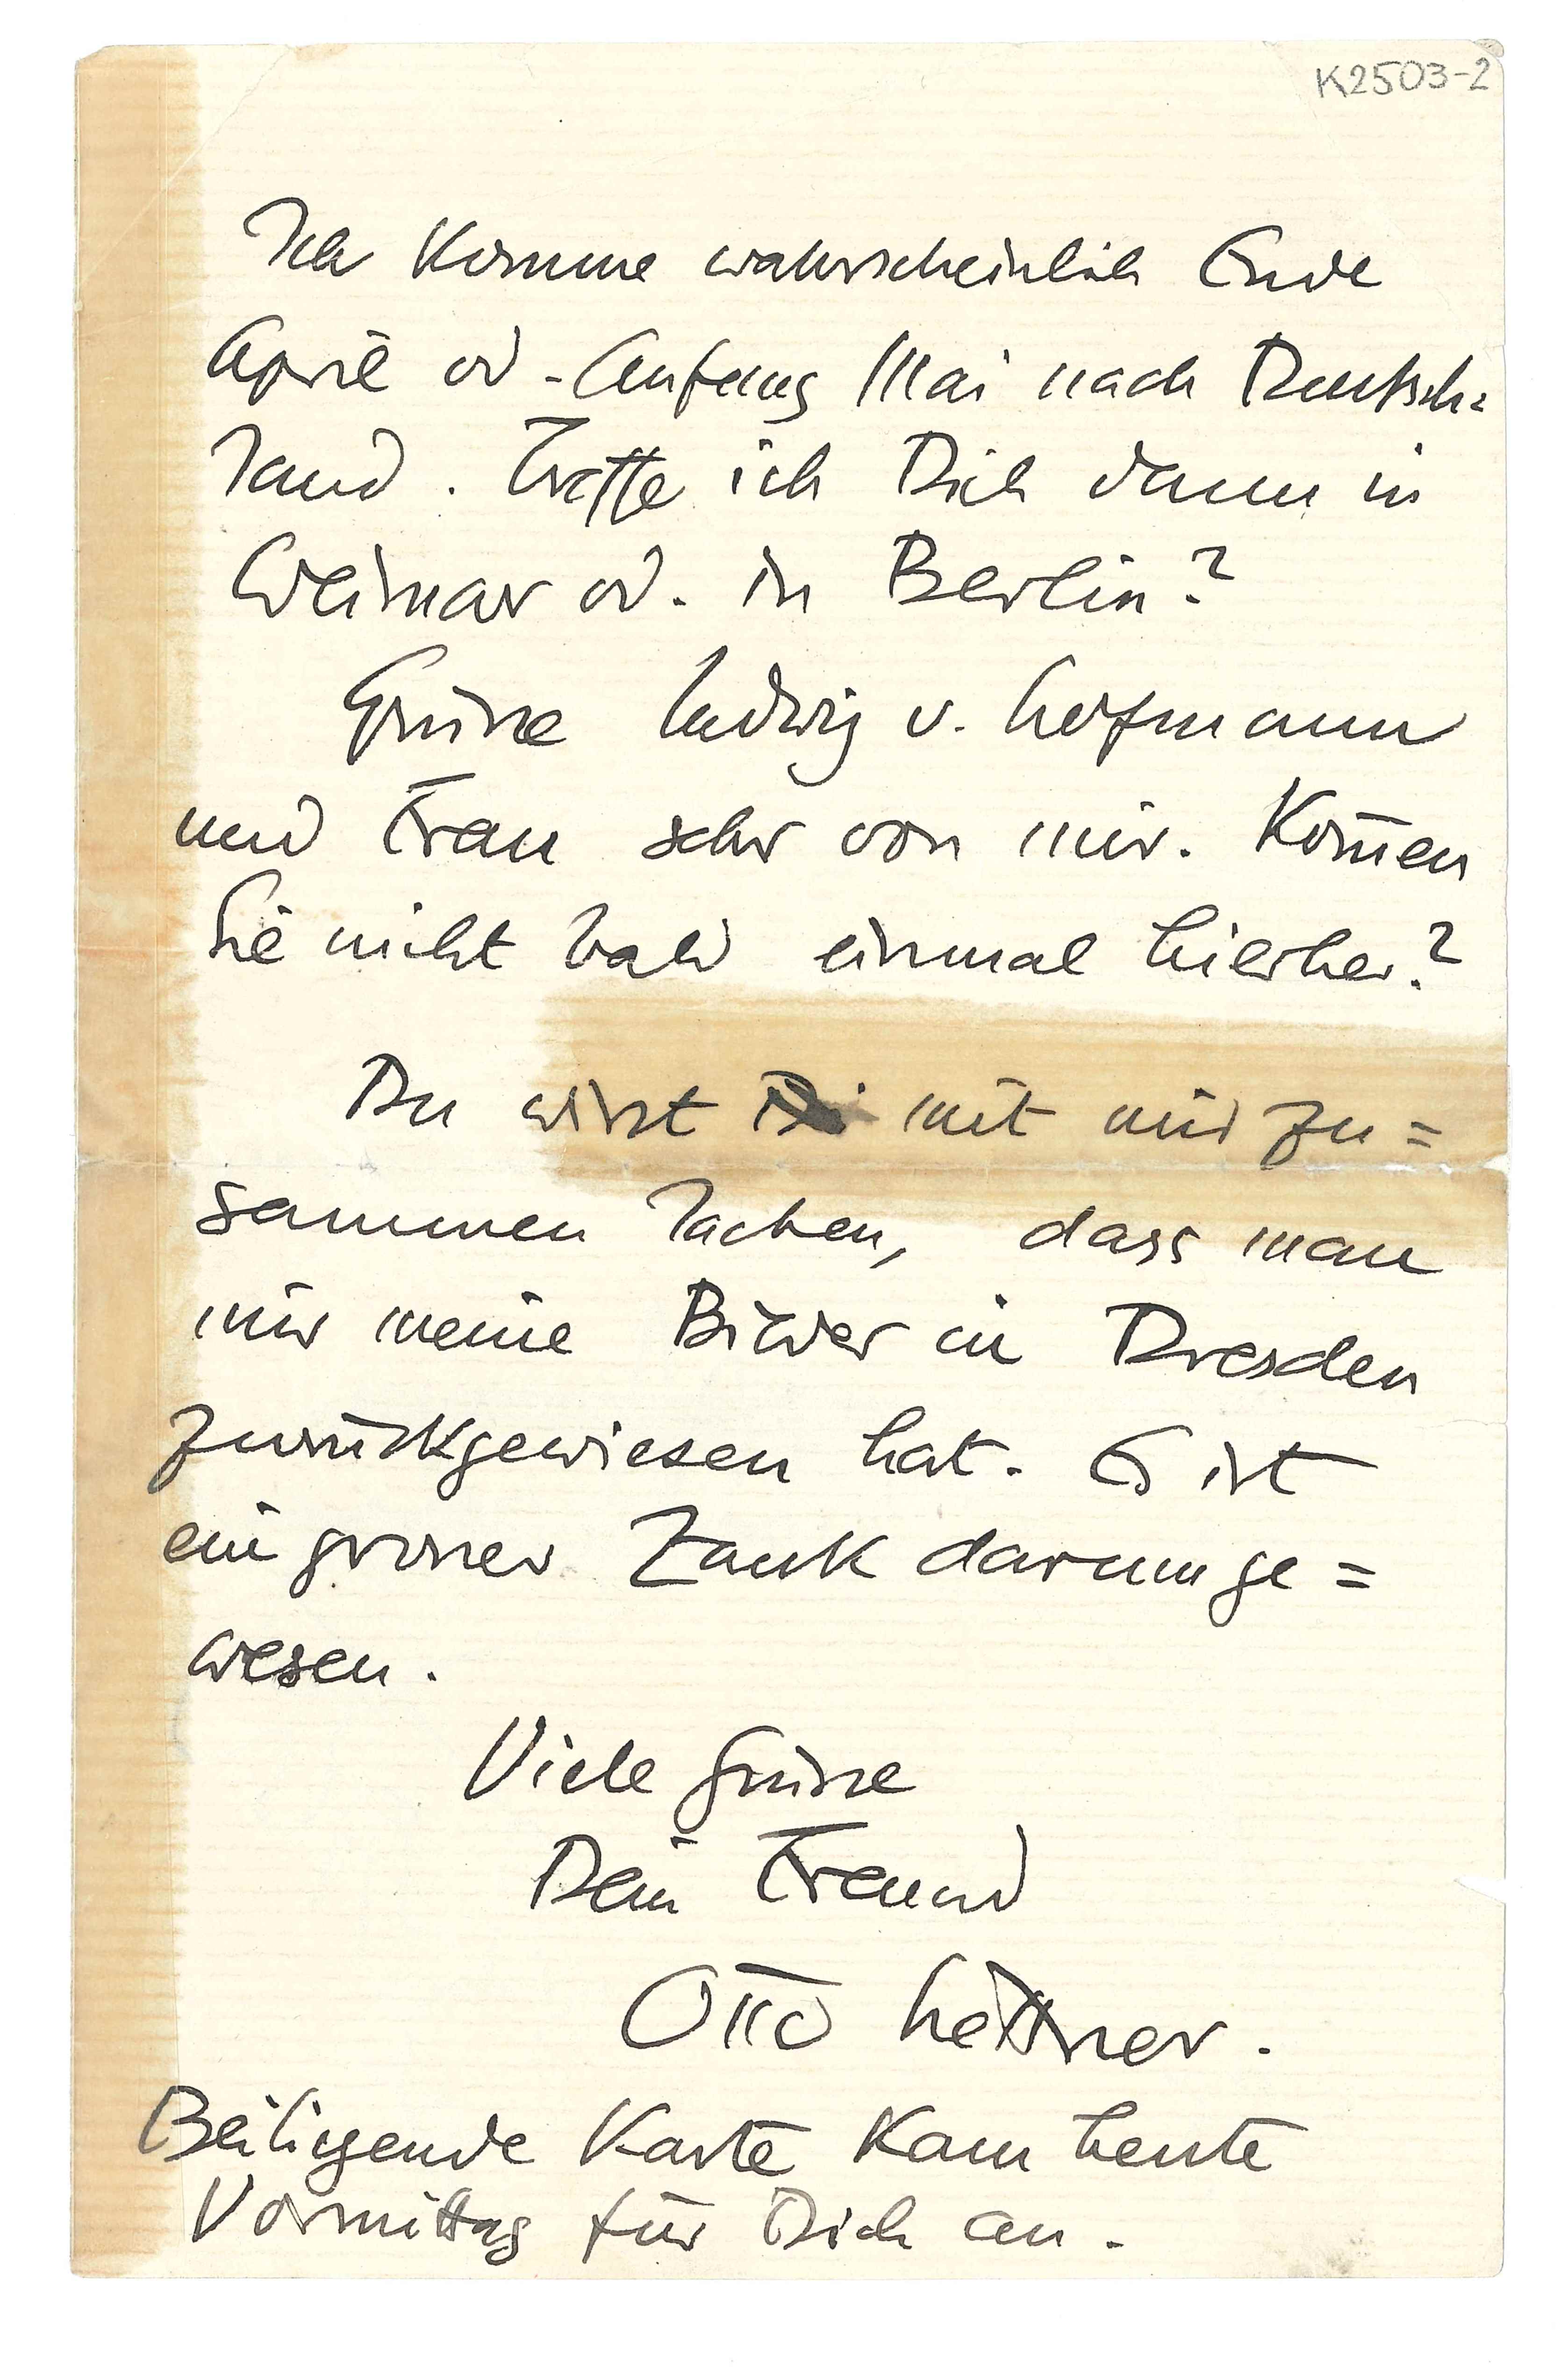 K2503-2
Ich komme wahrscheinlich Ende
April od. Anfang Mai nach Deutsch=
land. Treffe ich Dich dann in
Weimar od. in Berlin?
Grüsse Ludwig v. Hofmann
und Frau sehr von mir. Kom̄en
Sie nicht bald einmal hierher?
Du wirst mit mir zu=
sammen lachen, dass man
mir meine Bilder in Dresden
zurückgewiesen hat. Es ist
ein grosser Zank darum ge=
wesen.
Viele Grüsse
Dein Freund
Otto Hettner.
Beiligende Karte kam heute
Vormittag für Dich an.